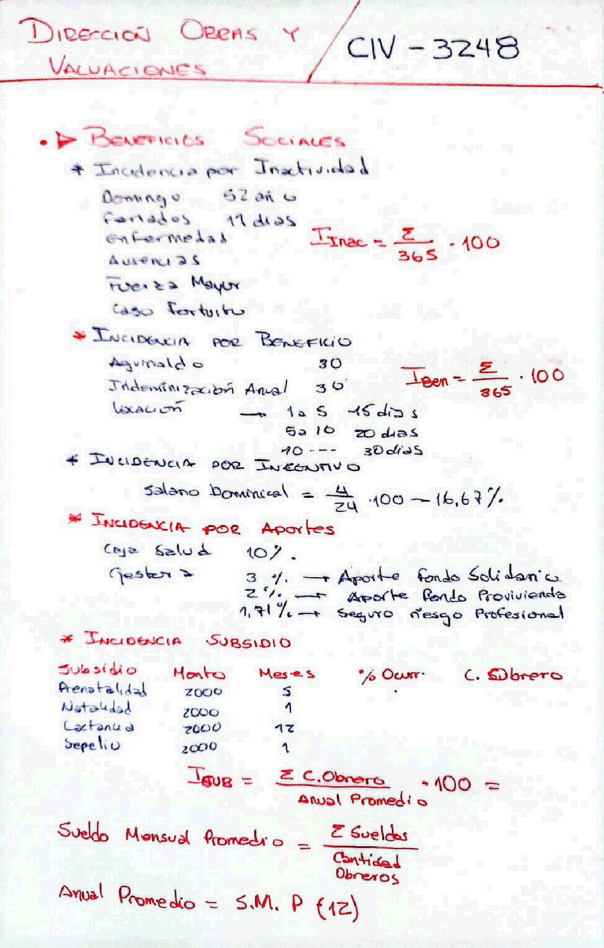 DIRECCIÓN OBRAS Y
VALUACIONES
CIV - 3248
• ▷ BENEFICIOS SOCIALES
* Incidencia por Inactividad
Domingo 52 año
feriados 11 dias
enfermedad
Ausencias
Fuerza Mayor
Caso Fortuito
I Inac = Σ / 365 · 100
* INCIDENCIA POR BENEFICIO
Aguinaldo 30
Indeminización Anual 30
Vacación → 1 a 5 15 dias
5 a 10 20 dias
10 --- 30 dias
I Ben = Σ / 365 · 100
* INCIDENCIA POR INCENTIVO
Salario Dominical = 4 / 24 · 100 — 16,67%
* INCIDENCIA POR Aportes
Caja Salud 10%.
Gestora 3 % → Aporte fondo Solidario
2 % → Aporte Fondo Provivienda
1,71% → Seguro riesgo Profesional
* INCIDENCIA SUBSIDIO
Subsidio Monto Meses % Ocurr. C. Obrero
Prenatalidad 2000 5
Natalidad 2000 1
Lactancia 2000 12
Sepelio 2000 1
I SUB = Σ C. Obrero / Anual Promedio · 100 =
Sueldo Mensual Promedio = Σ Sueldos / Cantidad Obreros
Anual Promedio = S.M. P (12)